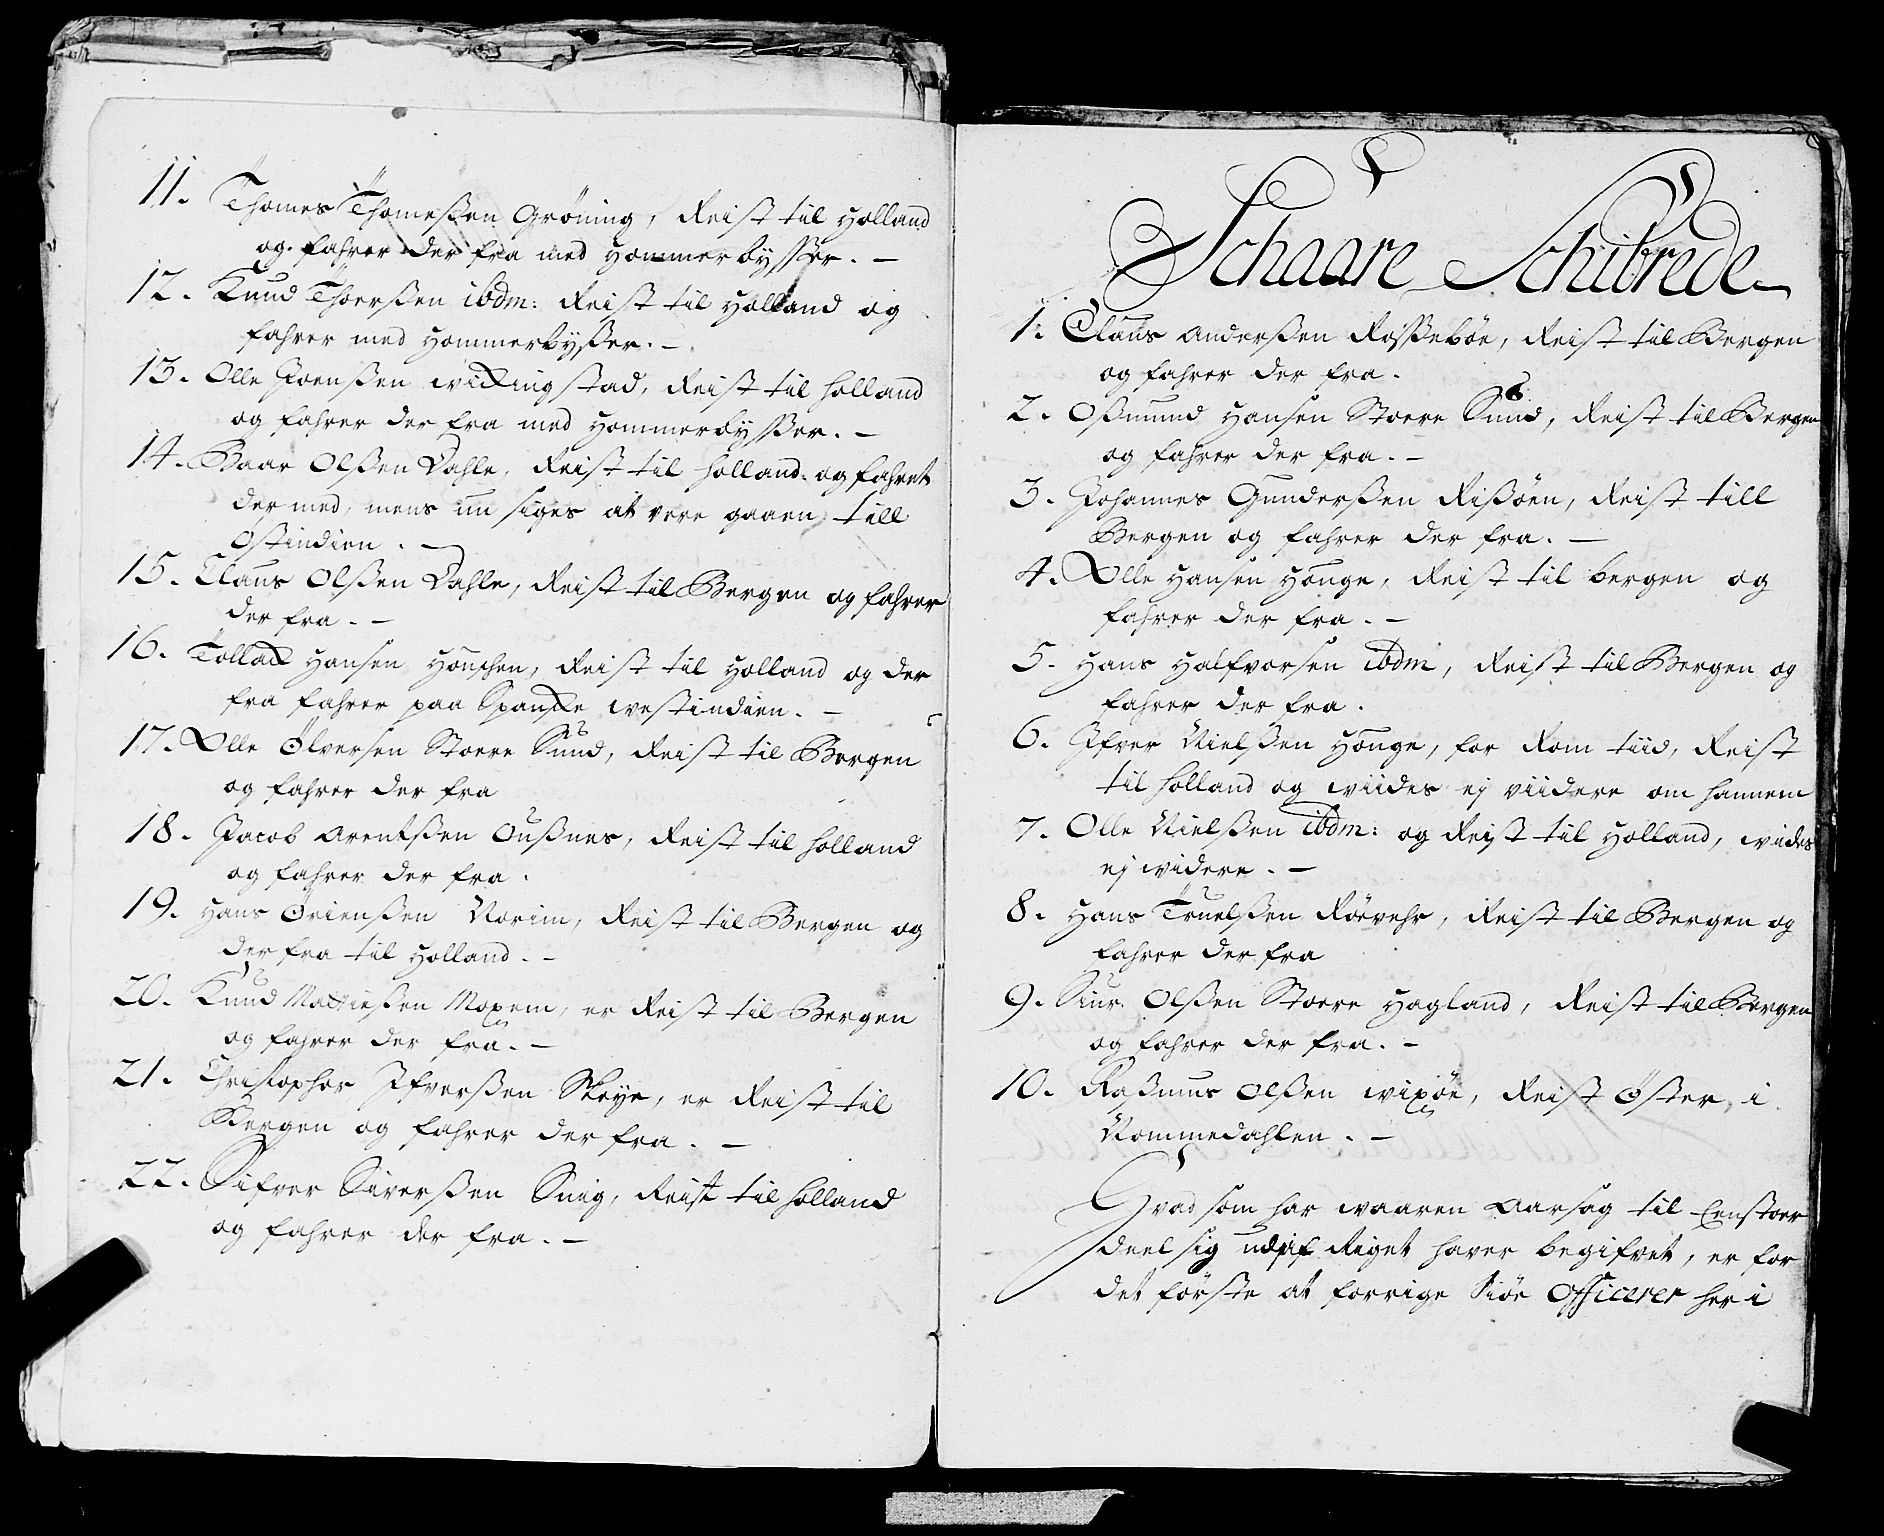 11. Thomes Thomeßen Grøning, Reist til Holland
og fahrer der fra med Hommerbysser. –
12. Knud Thoerßen ibdm: Reist til Holland og
fahrer med Hommerbysser. –
13. Olle Joenßen wickingstad, Reist til Holland
og fahrer der fra med Hommerbysser. –
14. Baar Olßen Dahle, Reist til Holland og fahret
der med, mens nu siges at vere gaaen till
Ostindien. –
15. Claus Olßen Dahle, Reist til Bergen og fahrer
der fra. –
16. Tollack Hansen Houschen, Reist til Holland og der
fra fahrer paa Spanske westindien. –
17. Olle Ølversen Stoere Sund, Reist til Bergen
og fahrer der fra
18. Jacob Arentsßen Oußnes, Reist til Holland
og fahrer der fra.
19. Hans Ørienßen Norim, Reist til Bergen og
der fra til Holland. –
20. Knud Mattießen Moxem, er Reist til Bergen
og fahrer der fra. –
21. Christophor Ifverßen Skeye, er Reist til
Bergen og fahrer der fra. –
22. Sifver Siverßen Snig, Reist til Holland
og fahrer der fra. –
Schaare Schibrede
1. Claus Anderßen Rossebøe, Reist til Bergen
og fahrer der fra.
2. Oßmund Hansen Stoere Sund, Reist til Bergen
og fahrer der fra. –
3. Johannes Gunderßen Rißøen, Reist till
Bergen og fahrer der fra. –
4. Olle Hansen Houge, Reist til bergen og
fahrer der fra. –
5. Hans Halfvorsen ibdm, Reist til Bergen og
fahrer der fra.
6. Ifver Nielßen Houge, for Rom tiid, Reist
til Holland og wiides ej viidere om hannem
7. Olle Nielßen ibdm: og Reist til Holland, wiides
ej widere. –
8. Hans Truelßen Rørvehr, Reist til Bergen og
fahrer der fra
9. Siur Olßen Stoere Hagland, Reist til Bergen
og fahrer der fra. –
10. Raßmus Olßen wixøe, Reist Øster i
Nommedahlen. –
Hvad som har waaren Aarsag til Eenstoer
deel sig udaf Riget haver begifvet, er for
det første at forrige Siøe Officerer her i